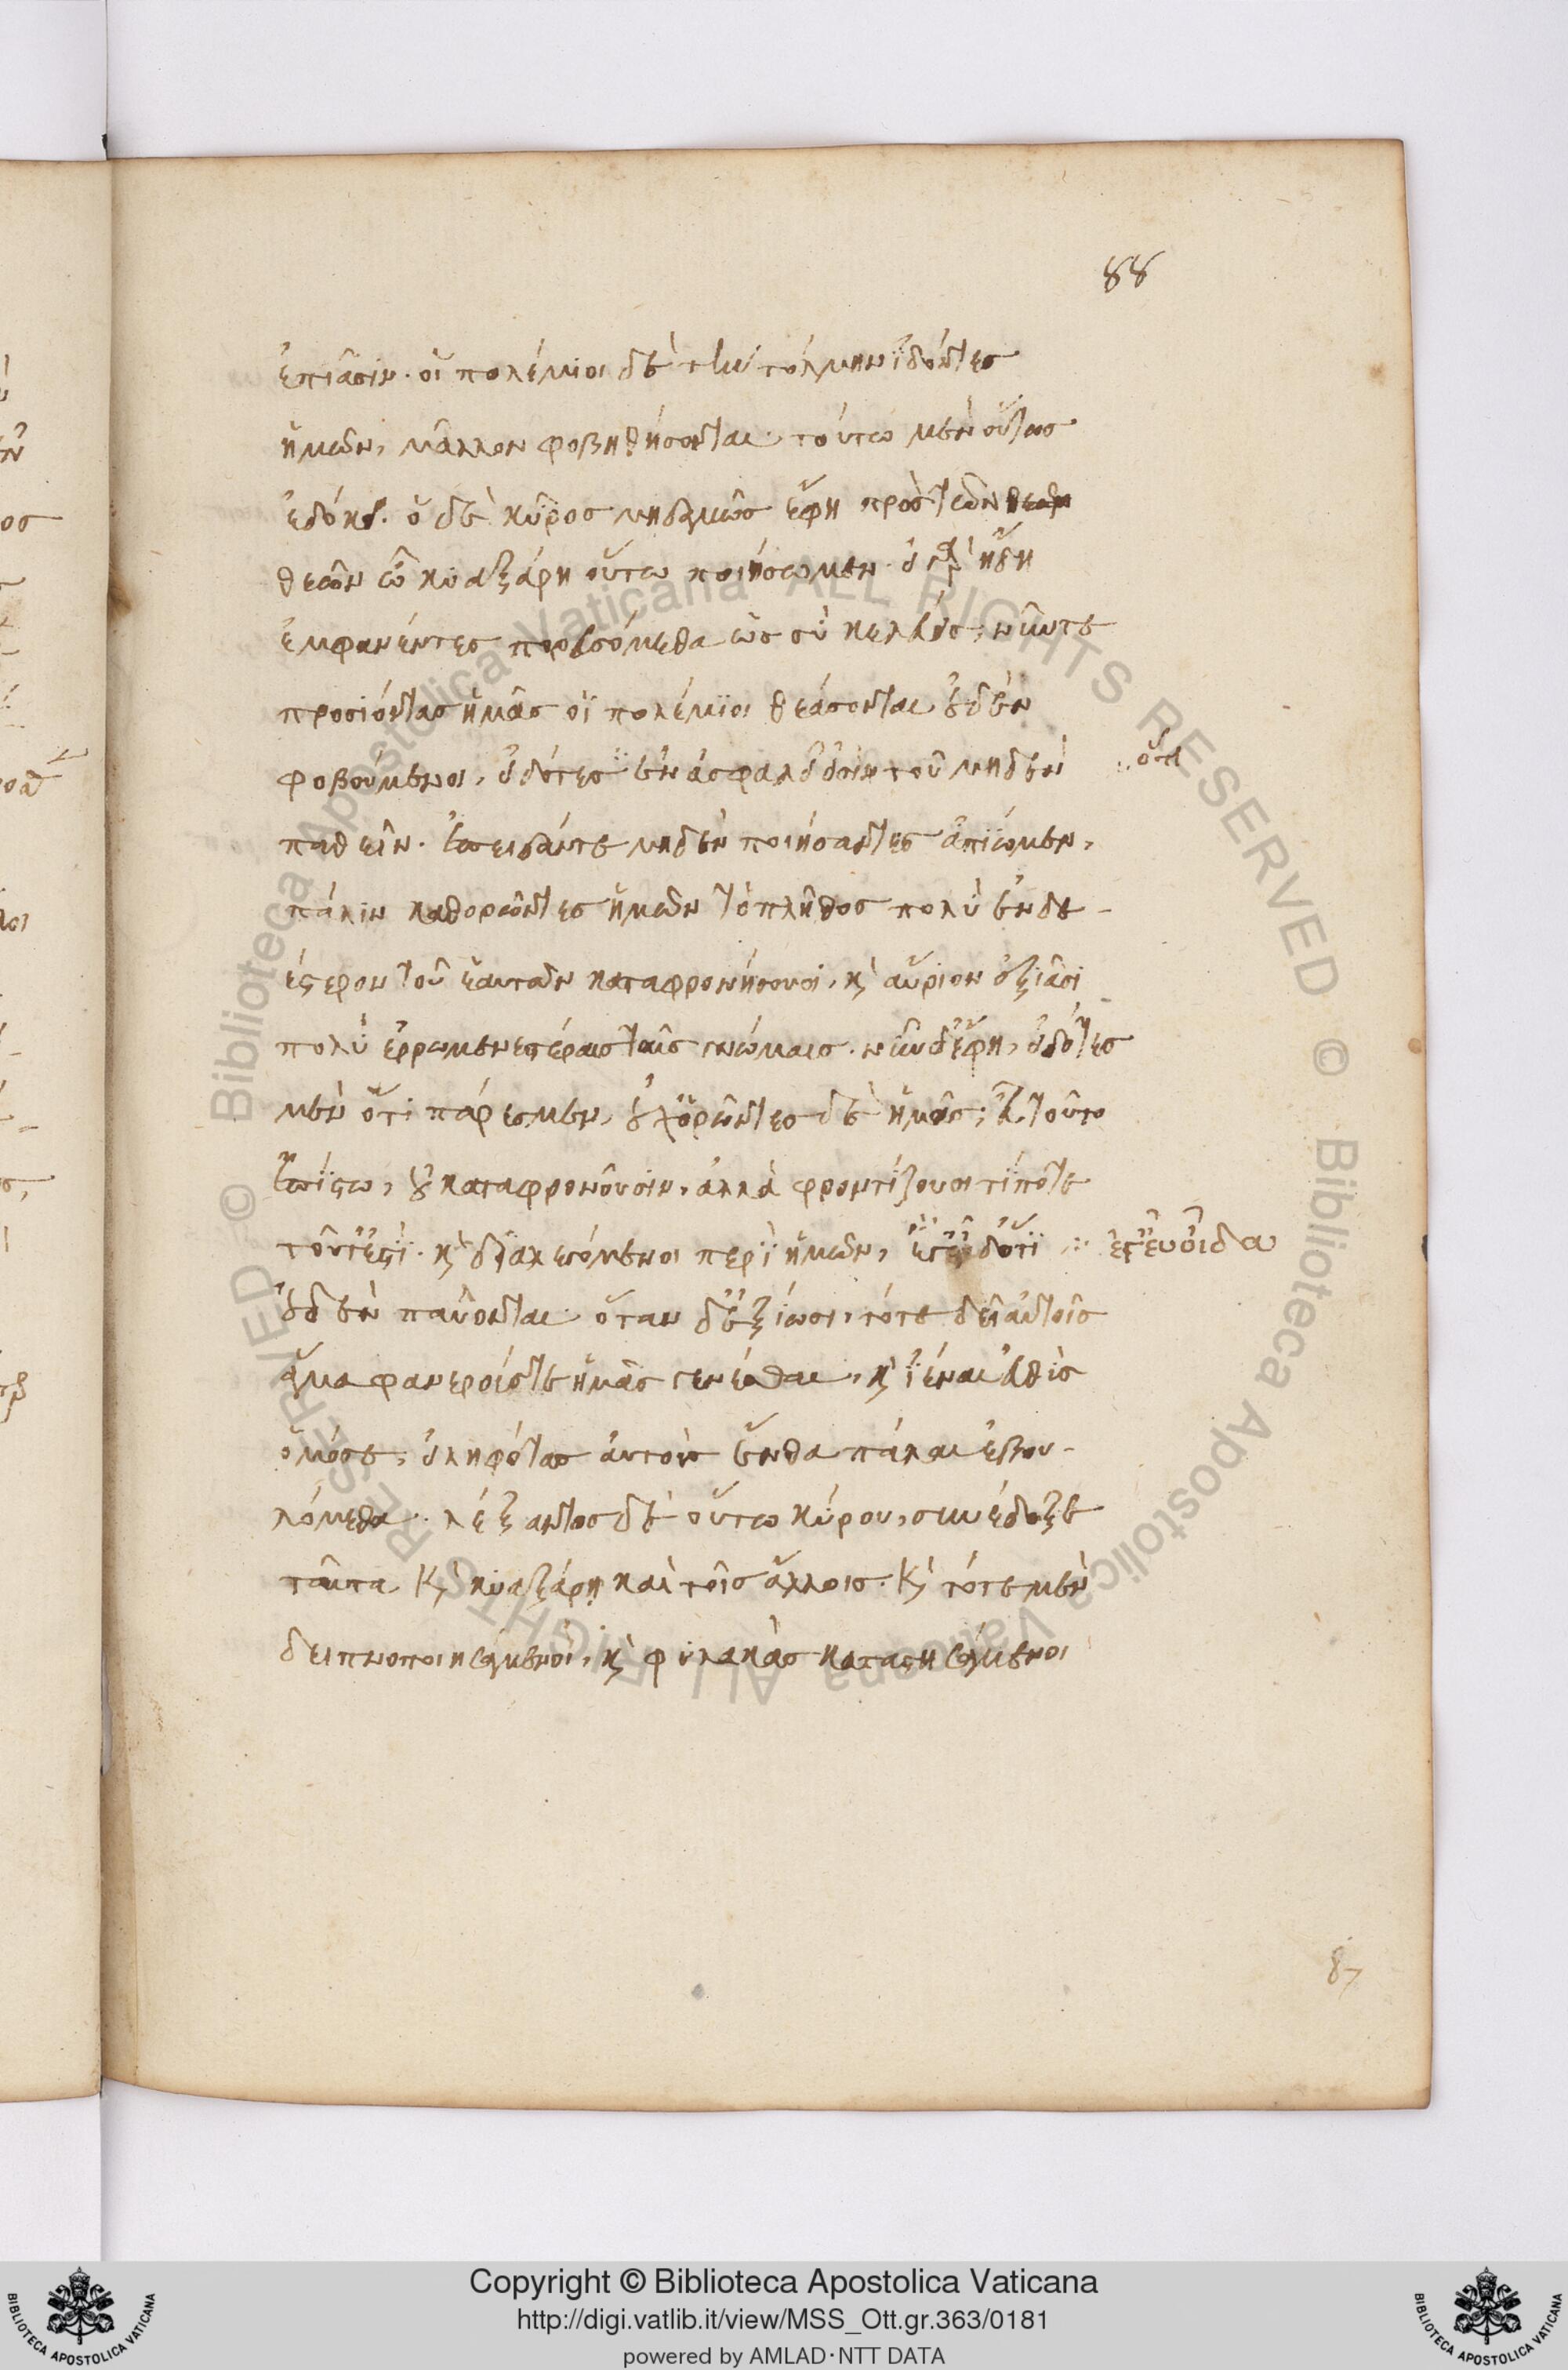 88
ἐπιᾶσιν. οἱ πολέμιοι δὲ τὴν τόλμην ἰδόντες
ἡμῶν, μᾶλλον φοβηθήσονται. τούτω μὲν οὕτως
ἐδόκει. ὁ δὲ κῦρος μηδαμῶς ἔφη πρὸς τῶν θεῶν
θεῶν ὦ κυαξάρη οὕτω ποιήσωμεν. εἰ γὰρ ἤδη
ἐμφανέντες πορευσόμεθα ὡς σὺ κελεύεις, νῦν τε
προσιόντας ἡμᾶς οἱ πολέμιοι θεάσονται οὐδὲν
φοβούμενοι, εἰδότες ἐν ἀσφαλεῖ εἶναι τοῦ μηδὲν
παθεῖν. ἐπειδάν τε μηδὲν ποιήσαντες ἀπίωμεν,
πάλιν καθορῶντες ἡμῶν τὸ πλῆθος πολὺ ἐνδε-
έστερον τοῦ ἑαυτῶν καταφρονήσουσι, καὶ αὔριον ἐξίασι
πολὺ ἐρρωμενεστέραις ταῖς γνώμαις. νῦν δ' ἔφη, εἰδότες
μὲν ὅτι πάρεσμεν, οὐχ ὁρῶντες δὲ ἡμᾶς, εὖ τοῦτο
ἐπίστω, οὐ καταφρονοῦσιν, ἀλλὰ φροντίζουσι τί ποτε
τοῦτ' ἐστί. καὶ διαλεγόμενοι περὶ ἡμῶν, ἐγ' εὖ εἰδ' ὅτι ἐγ' εὖ οἶδα
οὐδὲν παύονται. ὅταν δ' ἐξίωσι, τότε δεῖ αὐτοῖς
ἅμα φανερούς τε ἡμᾶς γενέσθαι, καὶ ἰέναι εὐθὺς
ὁμόσε, εἰληφότας αὐτοὺς ἔνθα πάλαι ἐβου-
λόμεθα. λέξαντος δὲ οὕτω κύρου, συνέδοξε
ταῦτα καὶ κυαξάρῃ καὶ τοῖς ἄλλοις. καὶ τότε μὲν
δειπνοποιησάμενοι, καὶ φυλακὰς καταστησάμενοι
87
Copyright © Biblioteca Apostolica Vaticana
http://digi.vatlib.it/view/MSS_Ott.gr.363/0181
powered by AMLAD·NTT DATA